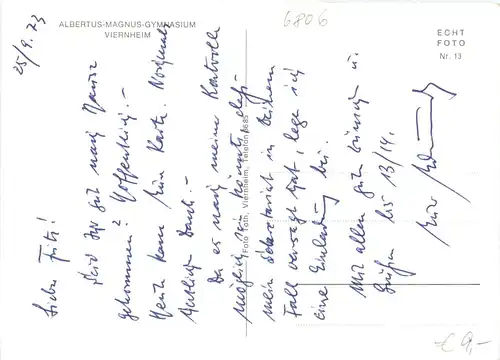 ALBERTUS-MAGNUS-GYMNASIUM
VIERNHEIM
6806
ECHT
FOTO
Nr. 13
Foto Toth, Viernheim, Telefon 685
25/9.73
Lieber Fritz!
Seid Ihr gut nach Hause
gekommen? Hoffentlich! –
Heute kam Eure Karte. Nochmals
herzlichen Dank. –
Da es nach meiner Kontrolle
möglich sein könnte, daß
mein Sekretariat in Deinem
Fall versagt hat, lege ich
eine Einladung bei.
Mit allen guten Wünschen u.
Grüßen bis 13/14.
Euer
€ 9,-